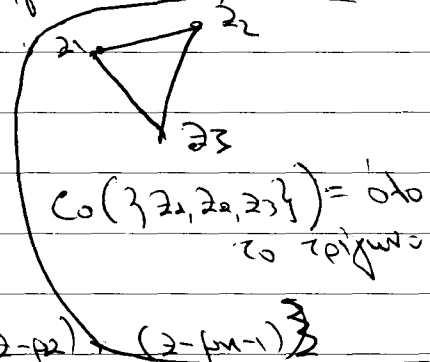 z1
z2
z3
Co({z1, z2, z3}) = όλο
το τρίγωνο
z-ρ2) (z-ρn-1)}